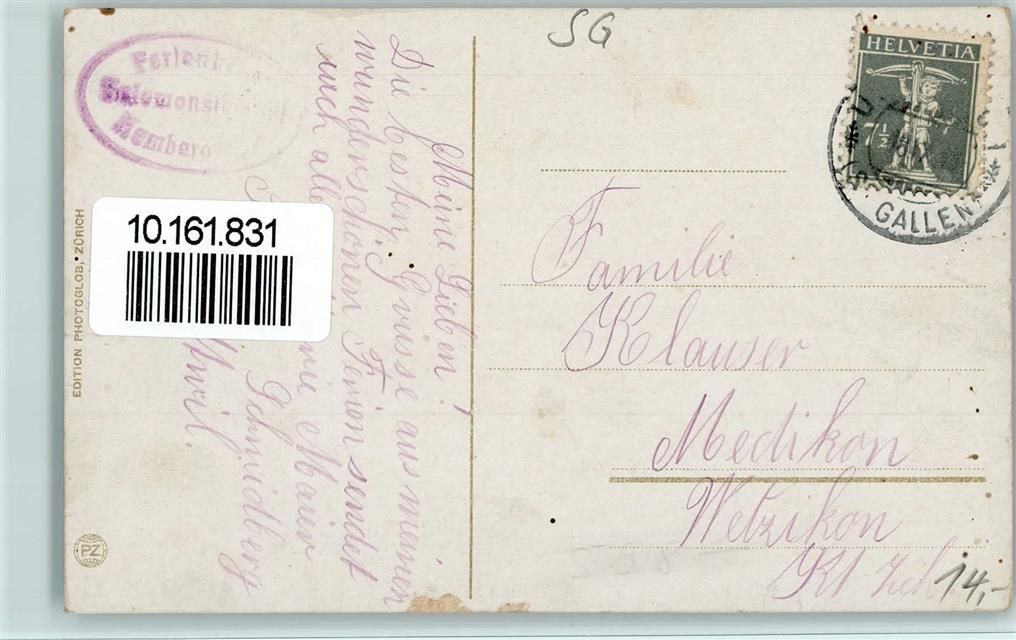 SG
HELVETIA
7½
GALLEN
Hemberg
10.161.831
EDITION PHOTOGLOB, ZÜRICH
PZ
Meine Lieben!
Die besten Grüsse aus meinen
wunderschönen Ferien sendet
euch alle
Maier
Schmidberg
Familie
Klauser
Medikon
Wetzikon
Kt Zch.
14,-